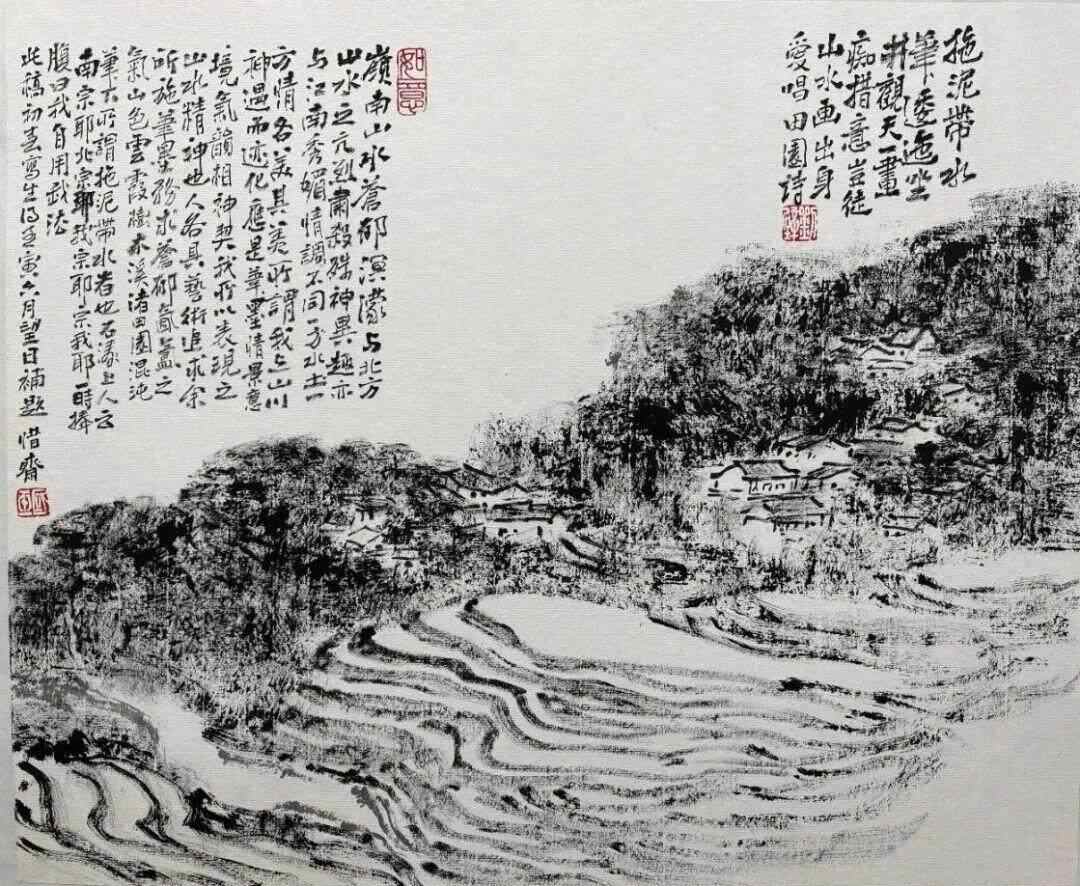 拖泥帶水
筆下逶迤坐
井觀天一畫
痴措意豈徒
山水画出身
愛唱田園詩
如意
嶺南山水蒼郁溟濛与北方
山水之亢烈肅殺殊神異趣亦
与江南秀媚情調不同一方水土一
方情各美其美所謂我与山川
神遇而迹化應是筆墨情景意
境氣韻相神契我所以表現之
山水精神也人各具藝術追求余
所施筆墨務求蒼郁氤氳之
氣山色雲霞樹木溪渚田園混沌
筆下所謂拖泥帶水者也石濤上人云
南宗耶北宗耶我宗耶宗我耶一時捧
腹曰我自用我法
此稿初春寫生得壬寅六月望日補題 惜齋